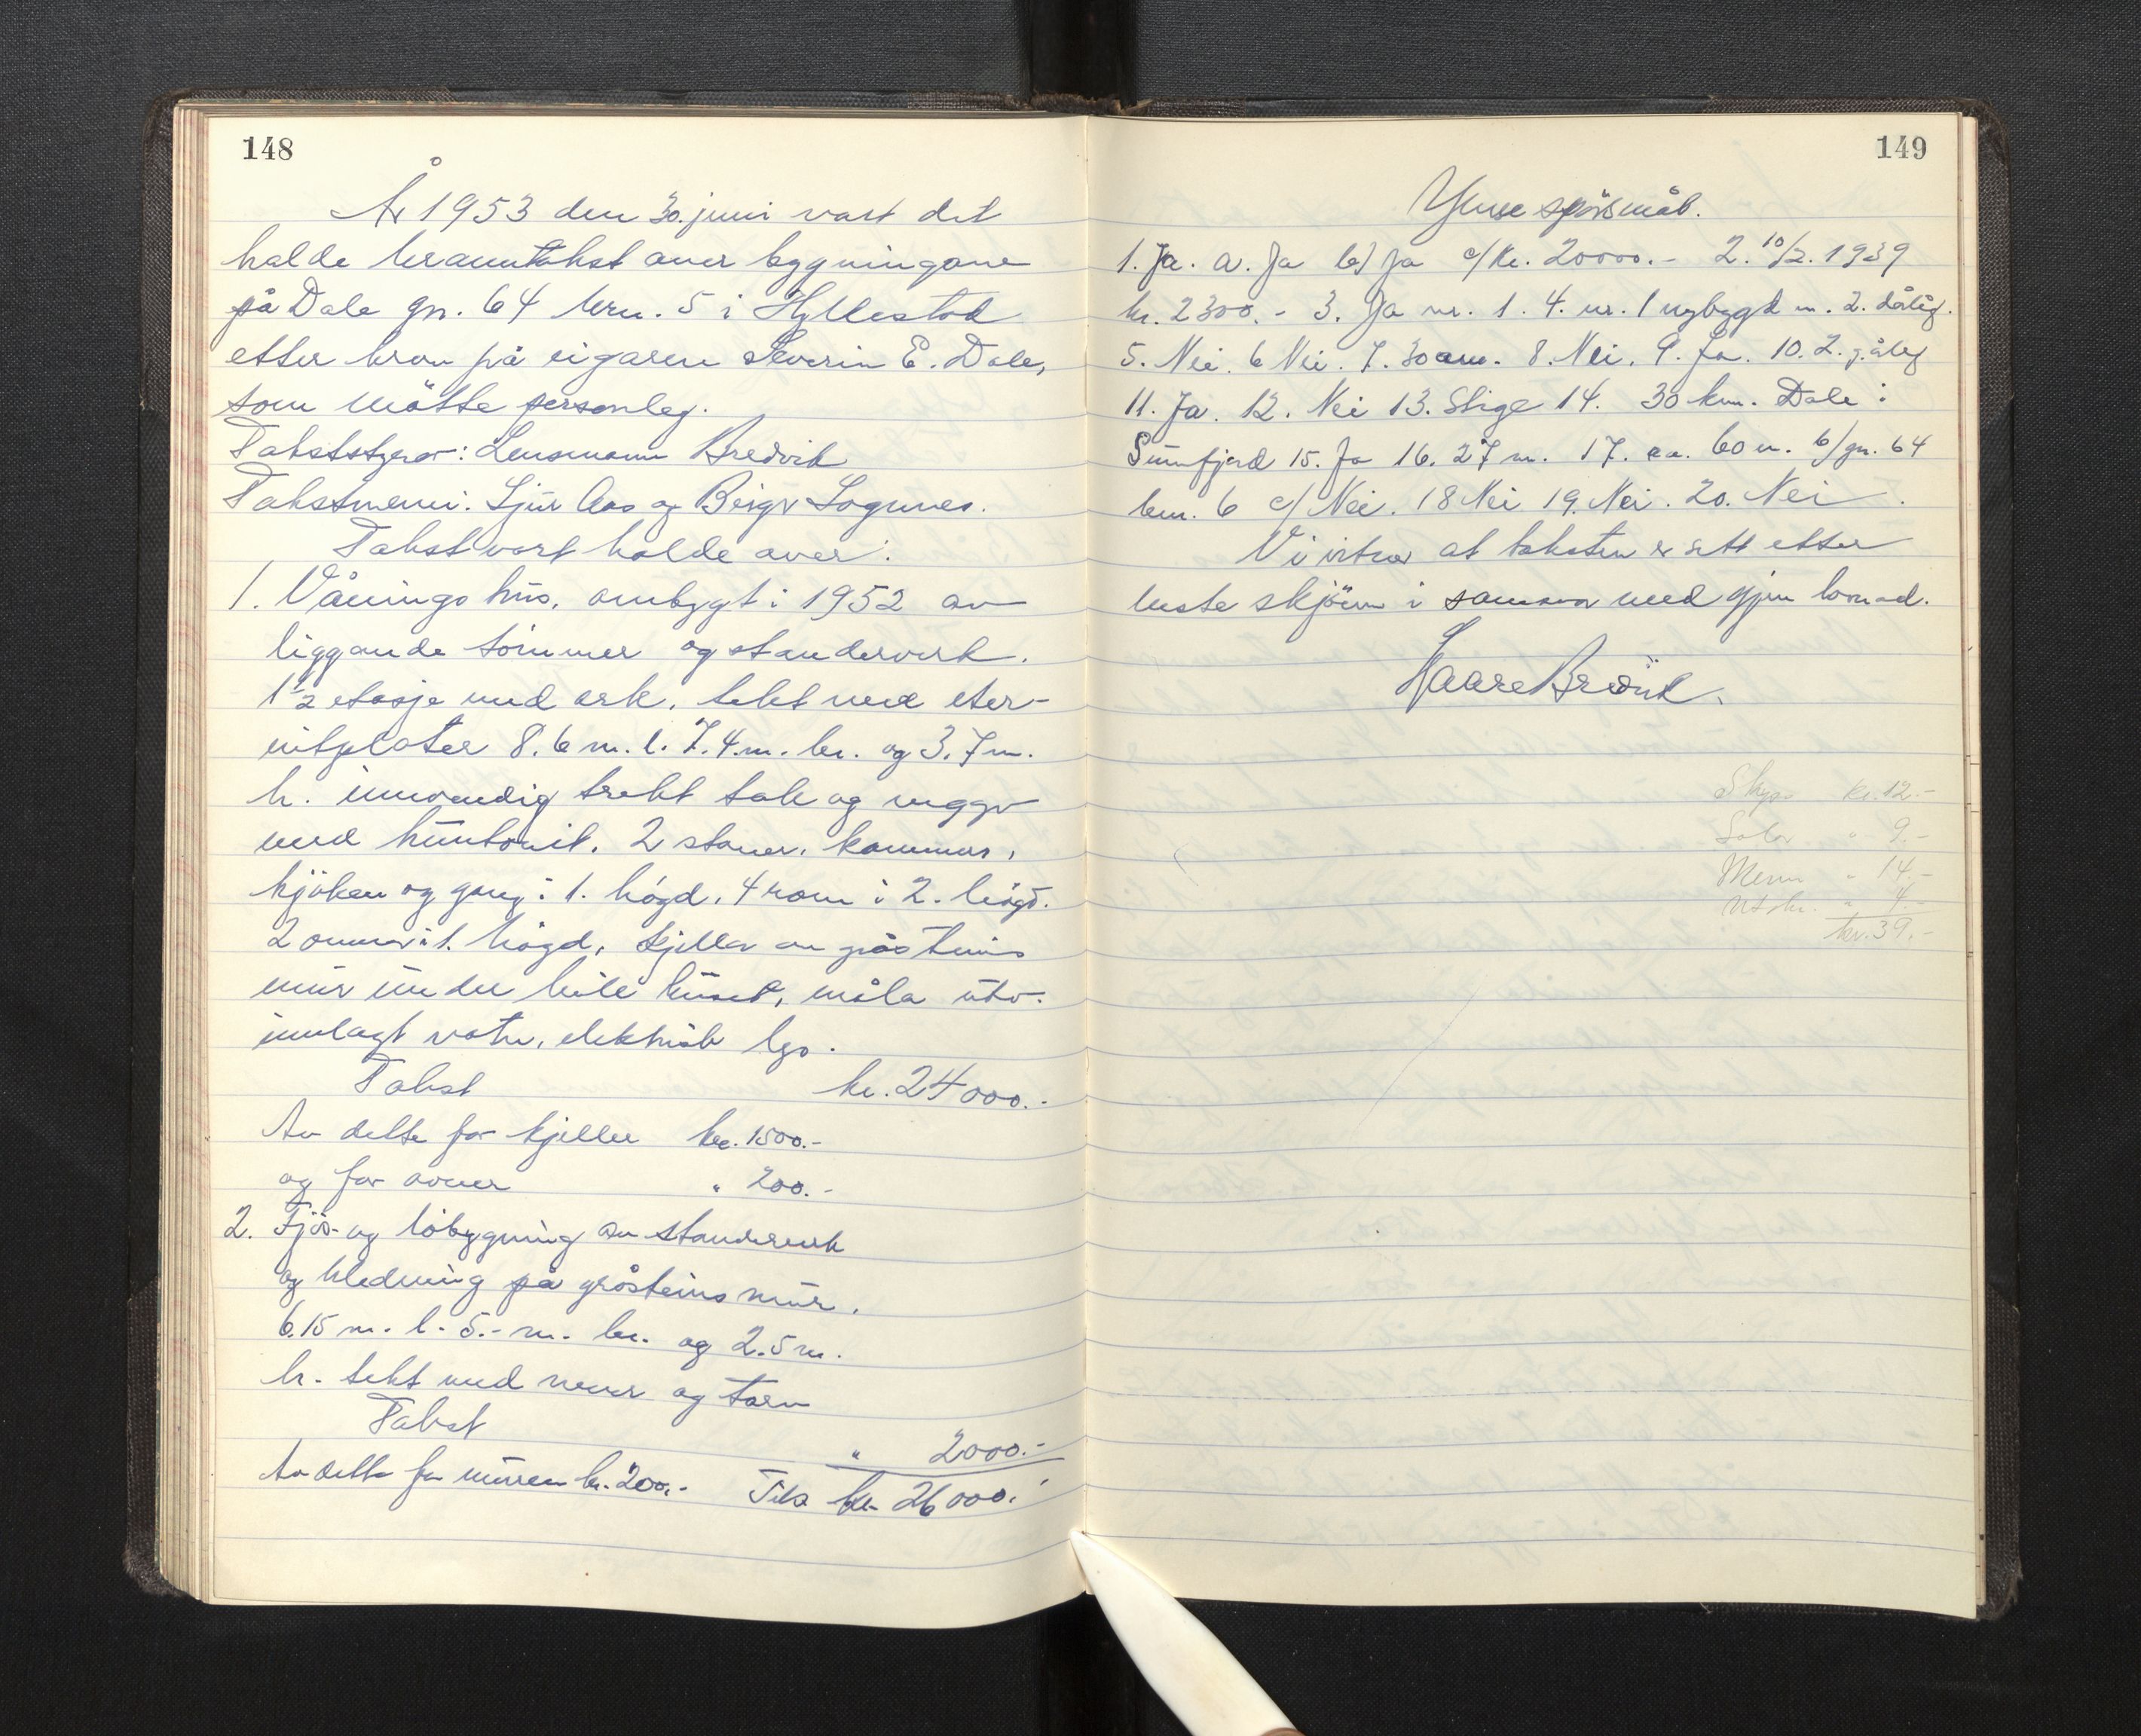 148
År 1953 den 30. juni vart det
halde branntakst over bygningane
på Dale gn. 64 brn. 5 i Hyllestad
etter krav på eigaren Severin E. Dale,
som møtte personleg.
Takststyrar: Lensmann Bredvik
Takstmenn: Sjur Aas og Birger Sognnes.
Takst vart halde over:
1. Våningshus, ombygt i 1952 av
liggande tømmer og standerverk.
1½ etasje med ark, tekt med eter-
nitplater 8.6 m. l. 7.4 m. br. og 3.7 m.
h. innvendig trekt tak og vegger
med huntonit. 2 stover, kammers,
kjøken og gang i 1. høgd, 4 rom i 2. høgd.
2 omner i 1. høgd, kjeller av gråsteins
mur under heile huset, måla utv.
innlagt vatn, elektrisk lys.
Takst kr. 24000.-
Av dette for kjeller kr. 1500.-
og for omner " 200.-
2. Fjøs- og løbygning av standerverk
og kledning på gråsteinsmur.
6.15 m. l. 5.- m. br. og 2.5 m.
h. tekt med never og torv
Takst " 2000.-
Av dette for muren kr. 200.- Tils kr. 26000.-
149
Ymse spørsmål.
1. Ja. a. Ja b) Ja c/ Kr. 20000.- 2. 10/2. 1939
kr. 2300.- 3. Ja nr. 1. 4. nr. 1 nybygd n. 2. dårlig.
5. Nei. 6 Nei. 7. 30 cm. 8. Nei. 9. Ja. 10. 2. pålig
11. Ja. 12. Nei 13. Stige 14. 30 km. Dale i
Sunnfjord 15. Ja 16. 27 m. 17. ca. 60 m. b/ gn. 64
brn. 6 c/ Nei. 18 Nei 19. Nei. 20. Nei.
Vi vitnar at taksten er sett etter
beste skjønn i samsvar med gjen
Kaare Bredvik.
Skyss kr. 12.-
9.-
Menn " 14.-
Utskr. " 4.-
kr. 39.-